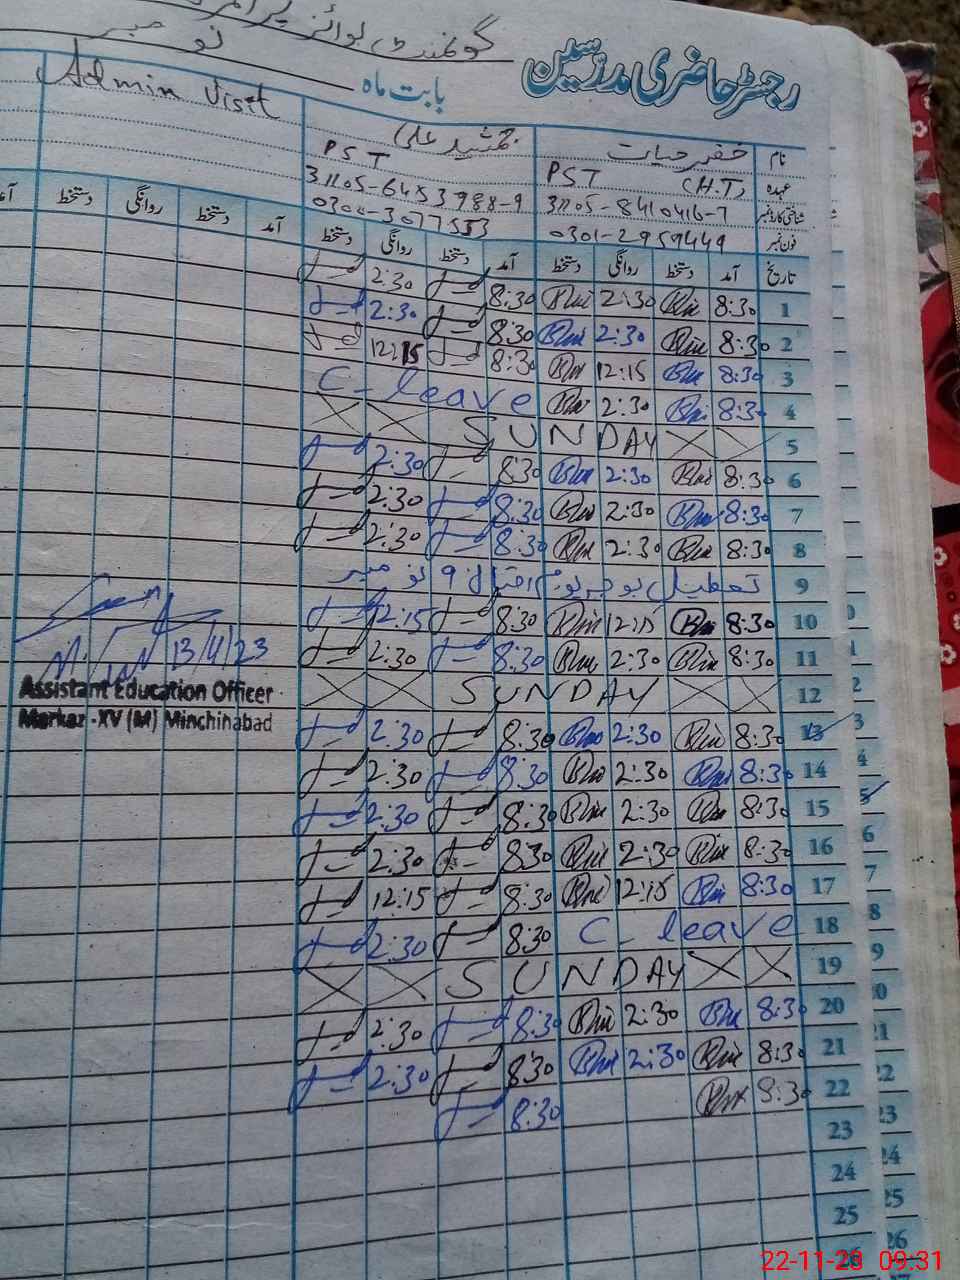 رجسٹر حاضری مدرسین
گورنمنٹ بوائز پرائمری
بابت ماہ نومبر
نام خضر حیات جمشید علی Admin Visit
عہدہ PST (H.T) PST
شناختی کارڈ نمبر 31105-8410416-7 31105-6453988-9
فون نمبر 0301-2959449 0300-3077553
تاریخ آمد دستخط روانگی دستخط آمد دستخط روانگی دستخط آمد دستخط روانگی دستخط آمد
1 8:30 2:30 8:30 2:30
2 8:30 2:30 8:30 2:30
3 8:30 12:15 8:30 12:15
4 8:30 2:30 C-leave
5 SUNDAY
6 8:30 2:30 8:30 2:30
7 8:30 2:30 8:30 2:30
8 8:30 2:30 8:30 2:30
9 تعطیل بوجہ یوم اقبال 9 نومبر
10 8:30 12:15 8:30 12:15
11 8:30 2:30 8:30 2:30
12 SUNDAY
13 8:30 2:30 8:30 2:30
14 8:30 2:30 8:30 2:30
15 8:30 2:30 8:30 2:30
16 8:30 2:30 8:30 2:30
17 8:30 12:15 8:30 12:15
18 C-leave 8:30 2:30
19 SUNDAY
20 8:30 2:30 8:30 2:30
21 8:30 2:30 8:30 2:30
22 8:30 8:30
23
24
25
26
13/11/23
Assistant Education Officer
Markaz-XV (M) Minchinabad
22-11-23 09:31